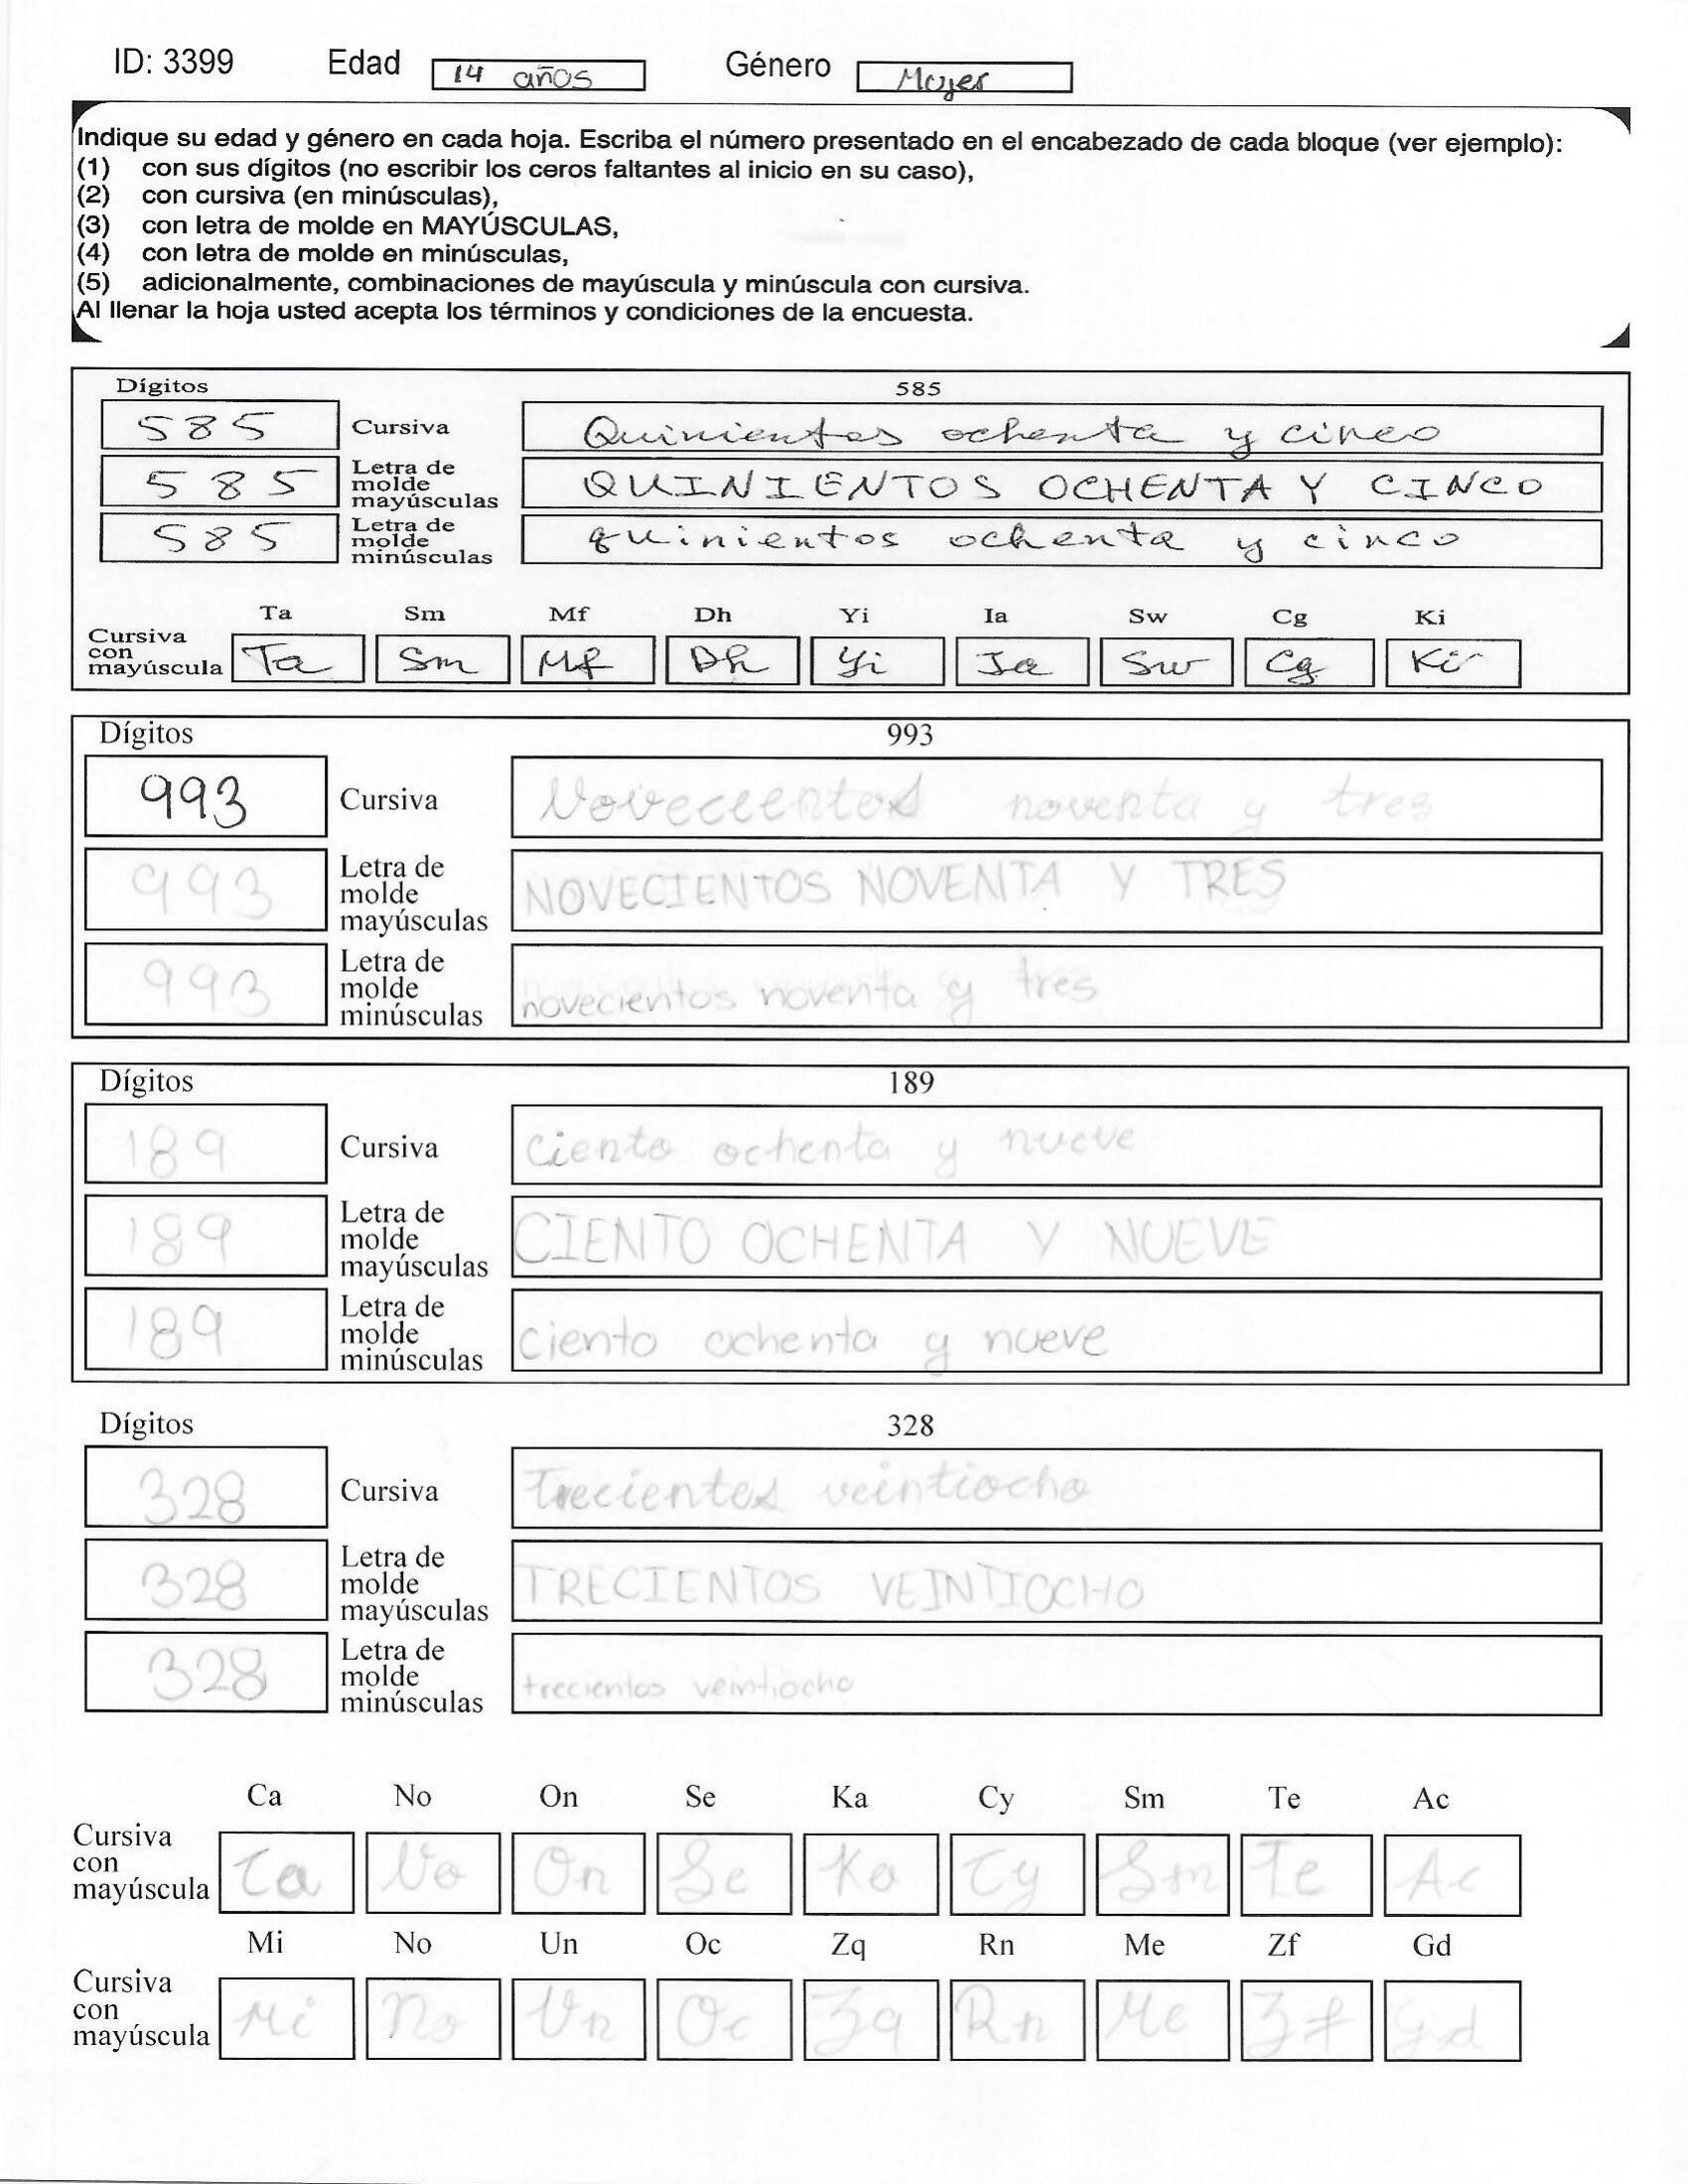 ID: 3399 Edad 14 años Género Mujer
Indique su edad y género en cada hoja. Escriba el número presentado en el encabezado de cada bloque (ver ejemplo):
(1) con sus dígitos (no escribir los ceros faltantes al inicio en su caso),
(2) con cursiva (en minúsculas),
(3) con letra de molde en MAYÚSCULAS,
(4) con letra de molde en minúsculas,
(5) adicionalmente, combinaciones de mayúscula y minúscula con cursiva.
Al llenar la hoja usted acepta los términos y condiciones de la encuesta.
Dígitos 585
585 Cursiva Quinientos ochenta y cinco
585 Letra de molde mayúsculas QUINIENTOS OCHENTA Y CINCO
585 Letra de molde minúsculas quinientos ochenta y cinco
Ta Sm Mf Dh Yi Ia Sw Cg Ki
Cursiva con mayúscula Ta Sm Mf Dh Yi Ia Sw Cg Ki
Dígitos 993
993 Cursiva Novecientos noventa y tres
993 Letra de molde mayúsculas NOVECIENTOS NOVENTA Y TRES
993 Letra de molde minúsculas novecientos noventa y tres
Dígitos 189
189 Cursiva Ciento ochenta y nueve
189 Letra de molde mayúsculas CIENTO OCHENTA Y NUEVE
189 Letra de molde minúsculas ciento ochenta y nueve
Dígitos 328
328 Cursiva Trecientos veintiocho
328 Letra de molde mayúsculas TRECIENTOS VEINTIOCHO
328 Letra de molde minúsculas trecientos veintiocho
Ca No On Se Ka Cy Sm Te Ac
Cursiva con mayúscula Ca No On Se Ka Cy Sm Te Ac
Mi No Un Oc Zq Rn Me Zf Gd
Cursiva con mayúscula Mi No Un Oc Zq Rn Me Zf Gd